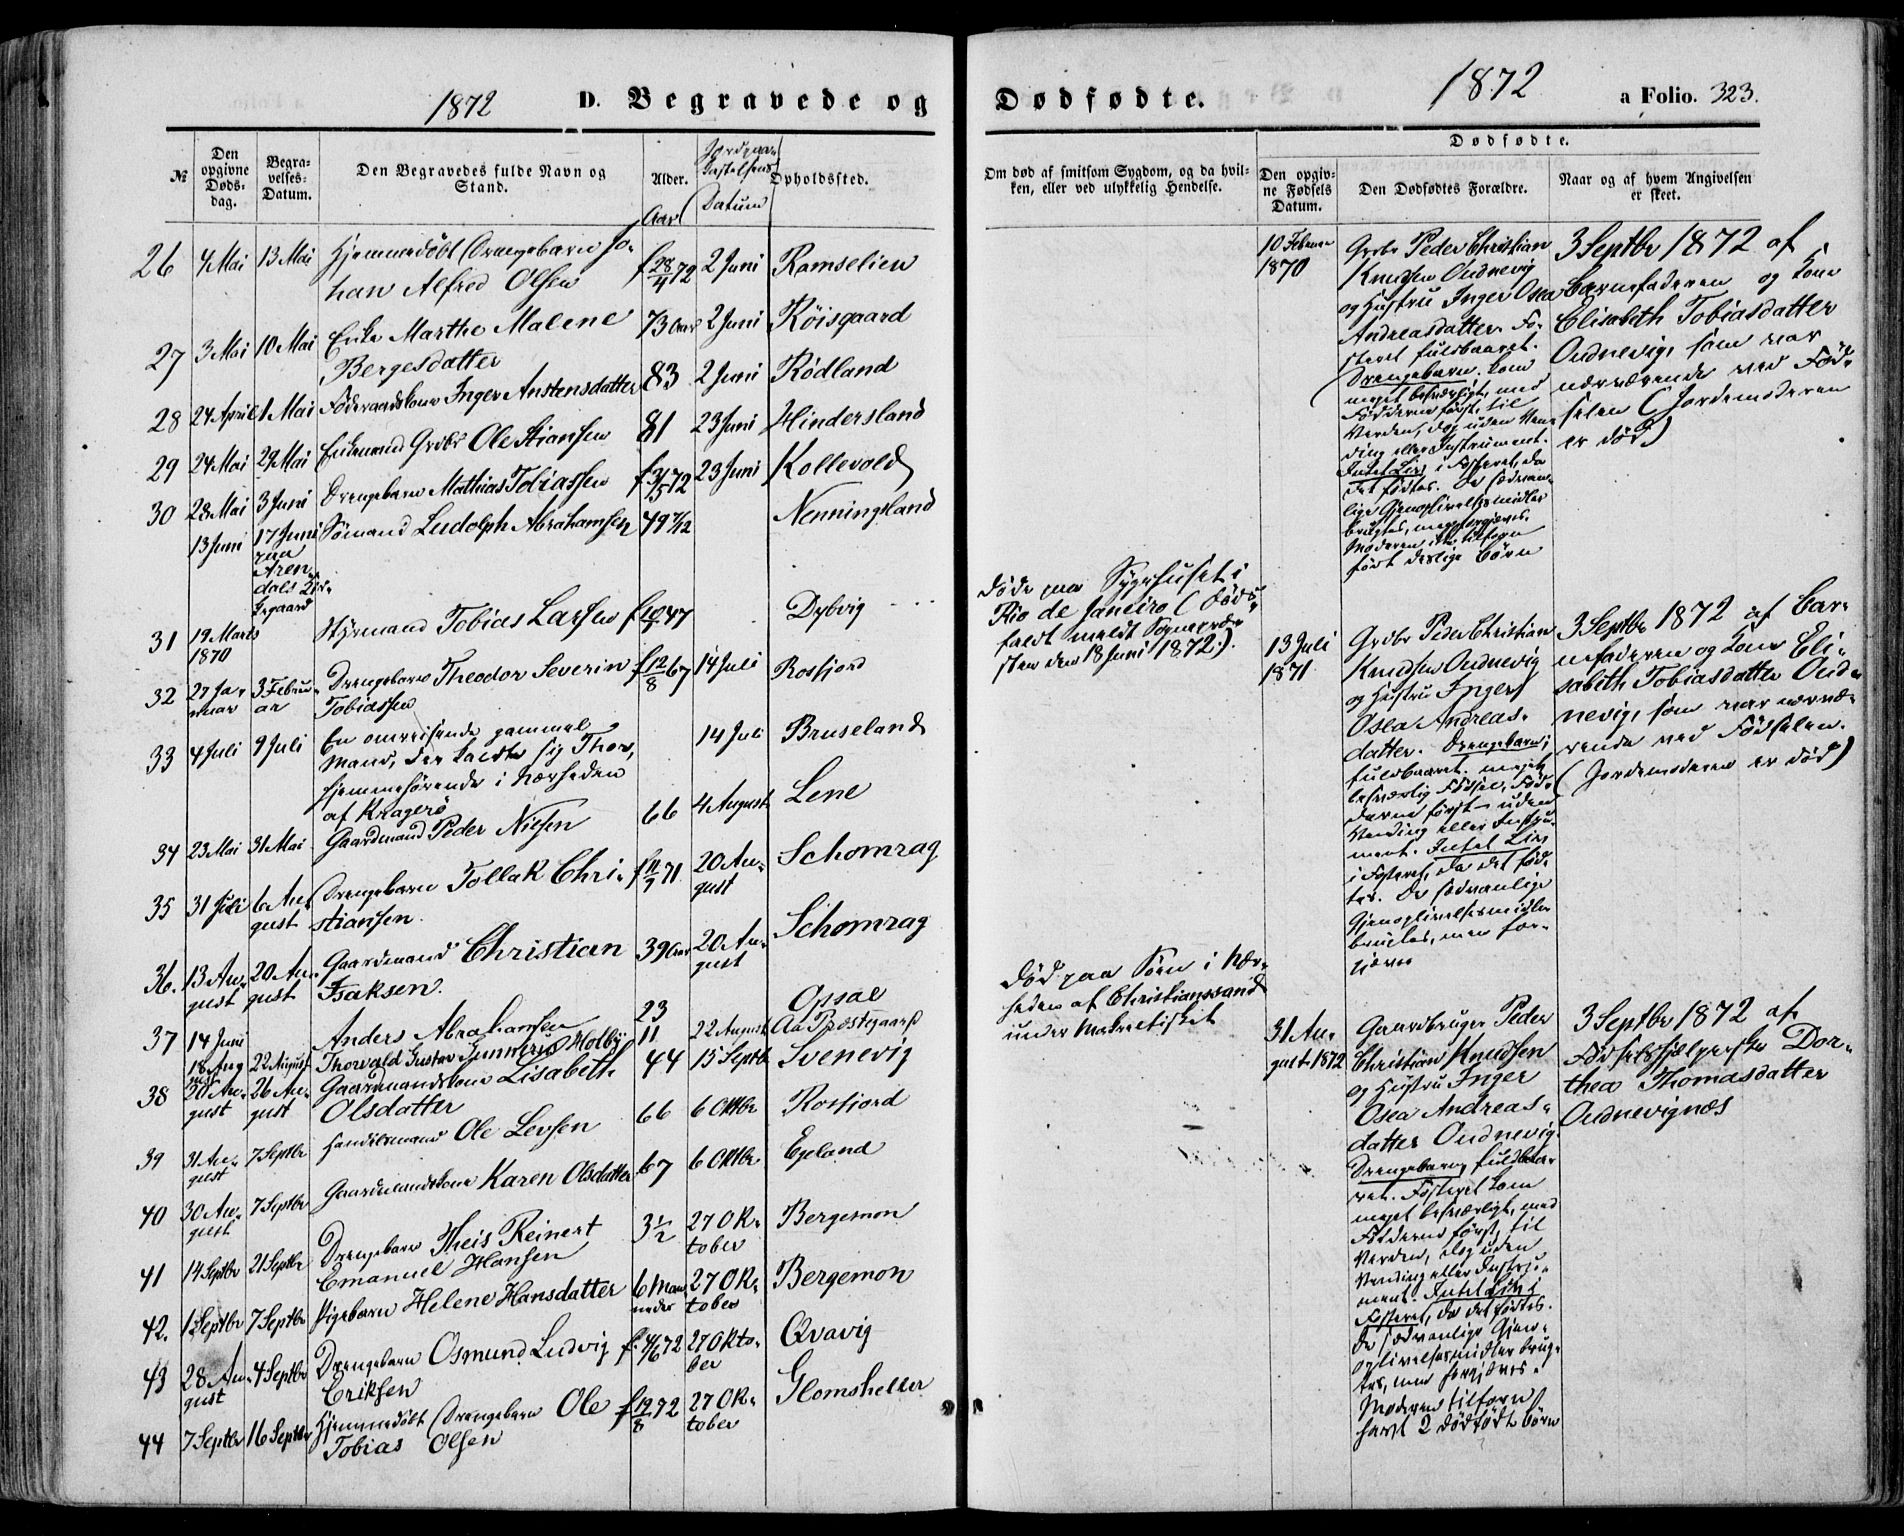 1872 D. Begravede og
№
Den opgivne Døds-dag.
Begra-velses-Datum.
Den Begravedes fulde Navn og Stand.
Alder.
Aar
Jordpaa-kastelsens Datum
Opholdssted.
26 4 Mai 13 Mai Hjemmedøbt Drengebarn Jo-
han Alfred Olsen f 28/4 72 2 Juni Ramselien
27 3 Mai 10 Mai Enke Marthe Malene
Bergesdatter 73 Aar 2 Juni Röisgaard
28 24 April 1 Mai Föderaadskone Inger Anstensdatter 83 2 Juni Rödland
29 24 Mai 29 Mai Enkemand Grdbr Ole Stiansen 81 23 Juni Hindersland
30 28 Mai 3 Juni Drengebarn Mathias Tobiassen f 3/5 72 23 Juni Kollevold
13 Juni 17 Juni Sömand Ludolph Abrahamsen 49 7/12 Nenningsland
paa
Aren-
dals Kir-
kegaard
31 19 Marts
1870 Styrmand Tobias Larsen 47 Dybvig
32 27 Ja-
nuar 3 Febru-
ar Drengebarn Theodor Severin
Tobiassen f 12/8 67 14 Juli Rosfjord
33 4 Juli 9 Juli En omreisende gammel
Mand, der kaldte sig Thor,
hjemmehörende i Nærheden
af Kragerö 14 Juli Bruseland
34 23 Mai 31 Mai Gaardmand Peder Nilsen 66 4 August Lene
35 31 Juli 6 Au-
gust Drengebarn Tollak Chri-
stiansen. f 11/7 71 20 Au-
gust Schomrag
36. 13 Au-
gust 20 Au-
gust Gaardmand Christian
Isaksen. 39 Aar 20 Au-
gust Schomrag
37 14 Juni Anders Abrahamsen 23 Opsal
18 Aug 22 August Thorvald Gustav Gunnerius Holby 11 22 August Aa Præstegaard
38 20 Au-
gust 26 Au-
gust Gaardmandskone Lisabeth
Olsdatter 44 15 Septb Svenevig
39 31 Au-
gust 7 Septbr Handelsmand Ole Levsen 66 6 Oktbr Rosfjord
40 30 Au-
gust 7 Septbr Gaardmandskone Karen Olsdatter 67 6 Oktbr Egeland
41 14 Septbr 21 Septbr Drengebarn Theis Reinert
Emanuel Hansen 3 1/2 27 Ok-
tober Bergemon
42. 1 Septbr 7 Septbr Pigebarn Helene Hansdatter 6 Maa-
neder 27 Ok-
tober Bergemon
43 28 Au-
gust 4 Septbr Drengebarn Osmund Ludvig
Eriksen f. 4/6 72 27 Okto-
ber Qvavig
44 7 Septbr 16 Septbr Hjemmedöbt Drengebarn Ole
Tobias Olsen f 19/8 72 27 Ok-
tober Glomsheller
Dødfødte. 1872 a Folio. 323.
Om død af smitsom Sygdom, og da hvil-
ken, eller ved ulykkelig Hendelse.
Dødfødte.
Den opgiv-
ne Fødsels
Datum.
Den Dødfødtes Forældre.
Naar og af hvem Angivelsen
er skeet.
Döde paa Sygehuset i
Rio de Janeiro (Döds-
faldt meldt Sognepræ-
sten den 18 Juni 1872.).
Död paa Söen i Nær-
heden af Christianssand
under Makrelfisket
10 Februar
1870
Grdbr Peder Christian
Knudsen Oudnevig
og Hustru Inger Osea
Andreasdatter. Fo-
steret fuldbaaret.
Drengebarn. Kom
meget besværligt, med
Födderne först, til
Verden, dog uden Ven-
ding eller Instrument.
Intet Liv i Fosteret, da
det födtes. De sædvan-
lige Gjenoplivelsesmidler
brugtes, men forgjæves.
Moderen ikke tilforn
födt deslige Börn
3 Septbr 1872 af
Barnefaderen og Kone
Elisabeth Tobiasdatter
Oudnevig, som var
nærværende ved Föd-
selen (Jordemoderen
er död)
13 Juli
1871
Grdbr Peder Christian
Knudsen Oudnevig
og Hustru Inger
Osea Andreas-
datter. Drengebarn,
fuldbaaret. meget
besværlig Födsel, Föd-
derne först uden
Vending eller Instru-
ment. Intet Liv
i Fosteret, da det föd-
tes. De sædvanlige
Gjenoplivelsesmidler
brugtes, men for-
gjæves
3 Septbr 1872 af Bar-
nefaderen og Kone Eli-
sabeth Tobiasdatter Oud-
nevig, som var nærvæ-
rende ved Födselen.
(Jordemoderen er död)
31 Au-
gust 1872
Gaardbruger Peder
Christian Knudsen
og Hustru Inger
Osea Andreas-
datter Oudnevig.
Drengebarn, fuldbaa-
ret. Fosteret kom
meget besværligt, med
Födderne först, til
Verden, dog uden
Vending eller Instru-
ment. Intet Liv i
Fosteret, da det födtes.
De sædvanlige Gjen-
oplivelsesmidler brug-
tes, men forgjæves.
Moderen tilforn
havt 2 dödfödte Börn
3 Septbr 1872 af
Födselshjælperske Dor-
thea Thomasdatter
Oudnevignæs